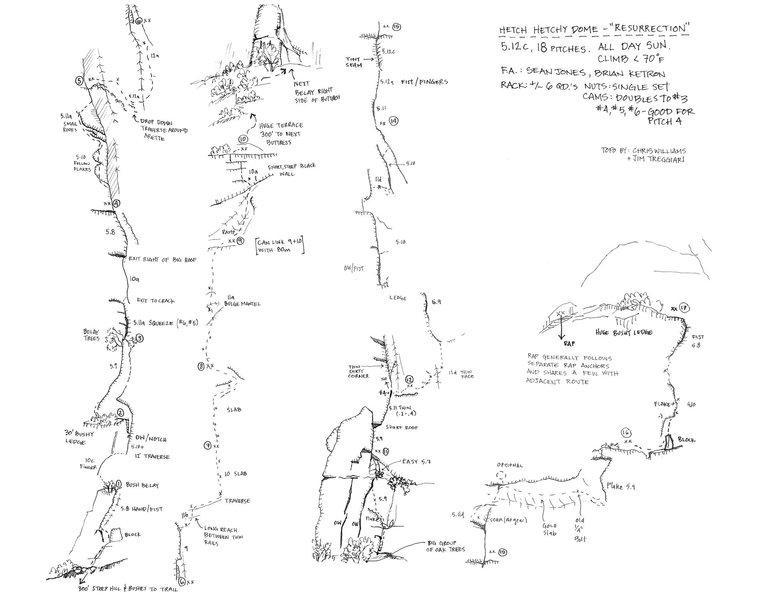 HETCH HETCHY DOME - "RESURRECTION"
5.12c, 18 PITCHES. ALL DAY SUN.
CLIMB < 70°F
F.A.: SEAN JONES, BRIAN KETRON
RACK: +/- 6 QD.'S NUTS: SINGLE SET
CAMS: DOUBLES TO #3
#4, #5, #6 - GOOD FOR
PITCH 4
TOPO BY: CHRIS WILLIAMS
+ JIM TREGGIARI
6 xx
12a
DROP DOWN
TRAVERSE AROUND
ARETTE
5
xx
5.11a
SMALL
ROOFS
5.10
HOLLOW
FLAKES
xx 4
5.8
EXIT RIGHT OF BIG ROOF
10a
EXIT TO CRACK
5.11a SQUEEZE (#6, #5)
BELAY
TREES
3
5.9
2
30' BUSHY
LEDGE
OW/NOTCH
12' TRAVERSE
10c
FINGER
1
BUSH BELAY
5.8 HAND/FIST
BLOCK
300' STEEP HILL & BUSHES TO TRAIL
NEXT
BELAY RIGHT
SIDE OF BUTTRESS
HUGE TERRACE
300' TO NEXT
BUTTRESS
10
xx
10a
SHORT, STEEP BLACK
WALL
xx 9
[CAN LINK 9+10
WITH 80m]
11a
BULGE MANTEL
8 xx
SLAB
xx
10 SLAB
TRAVERSE
11b
LONG REACH
BETWEEN THIN
RAILS
9
6 xx
xx 15
5.12c
TINY
SEAM
5.12a
FIST/FINGERS
5.11
14
5.10
11d
5.10
OW/FIST
xx
LEDGE
5.9
THIN
CORNER
13
11d THIN
FACE
5.11 THIN
(.2-.4)
SHORT ROOF
5.9
xx 11
EASY 5.7
5.9
OW
OW
BIG GROUP
OF OAK TREES
xx
RAP
HUGE BUSHY LEDGE
xx 17
FIST
5.8
RAP GENERALLY FOLLOWS
SEPARATE RAP ANCHORS
AND SHARES A FEW WITH
ADJACENT ROUTE
FLAKE
5.10
16
xx
BLOCK
OPTIONAL
Flake 5.9
5.11d
Gold
Slab
Old
1/4"
Bolt
xx 15